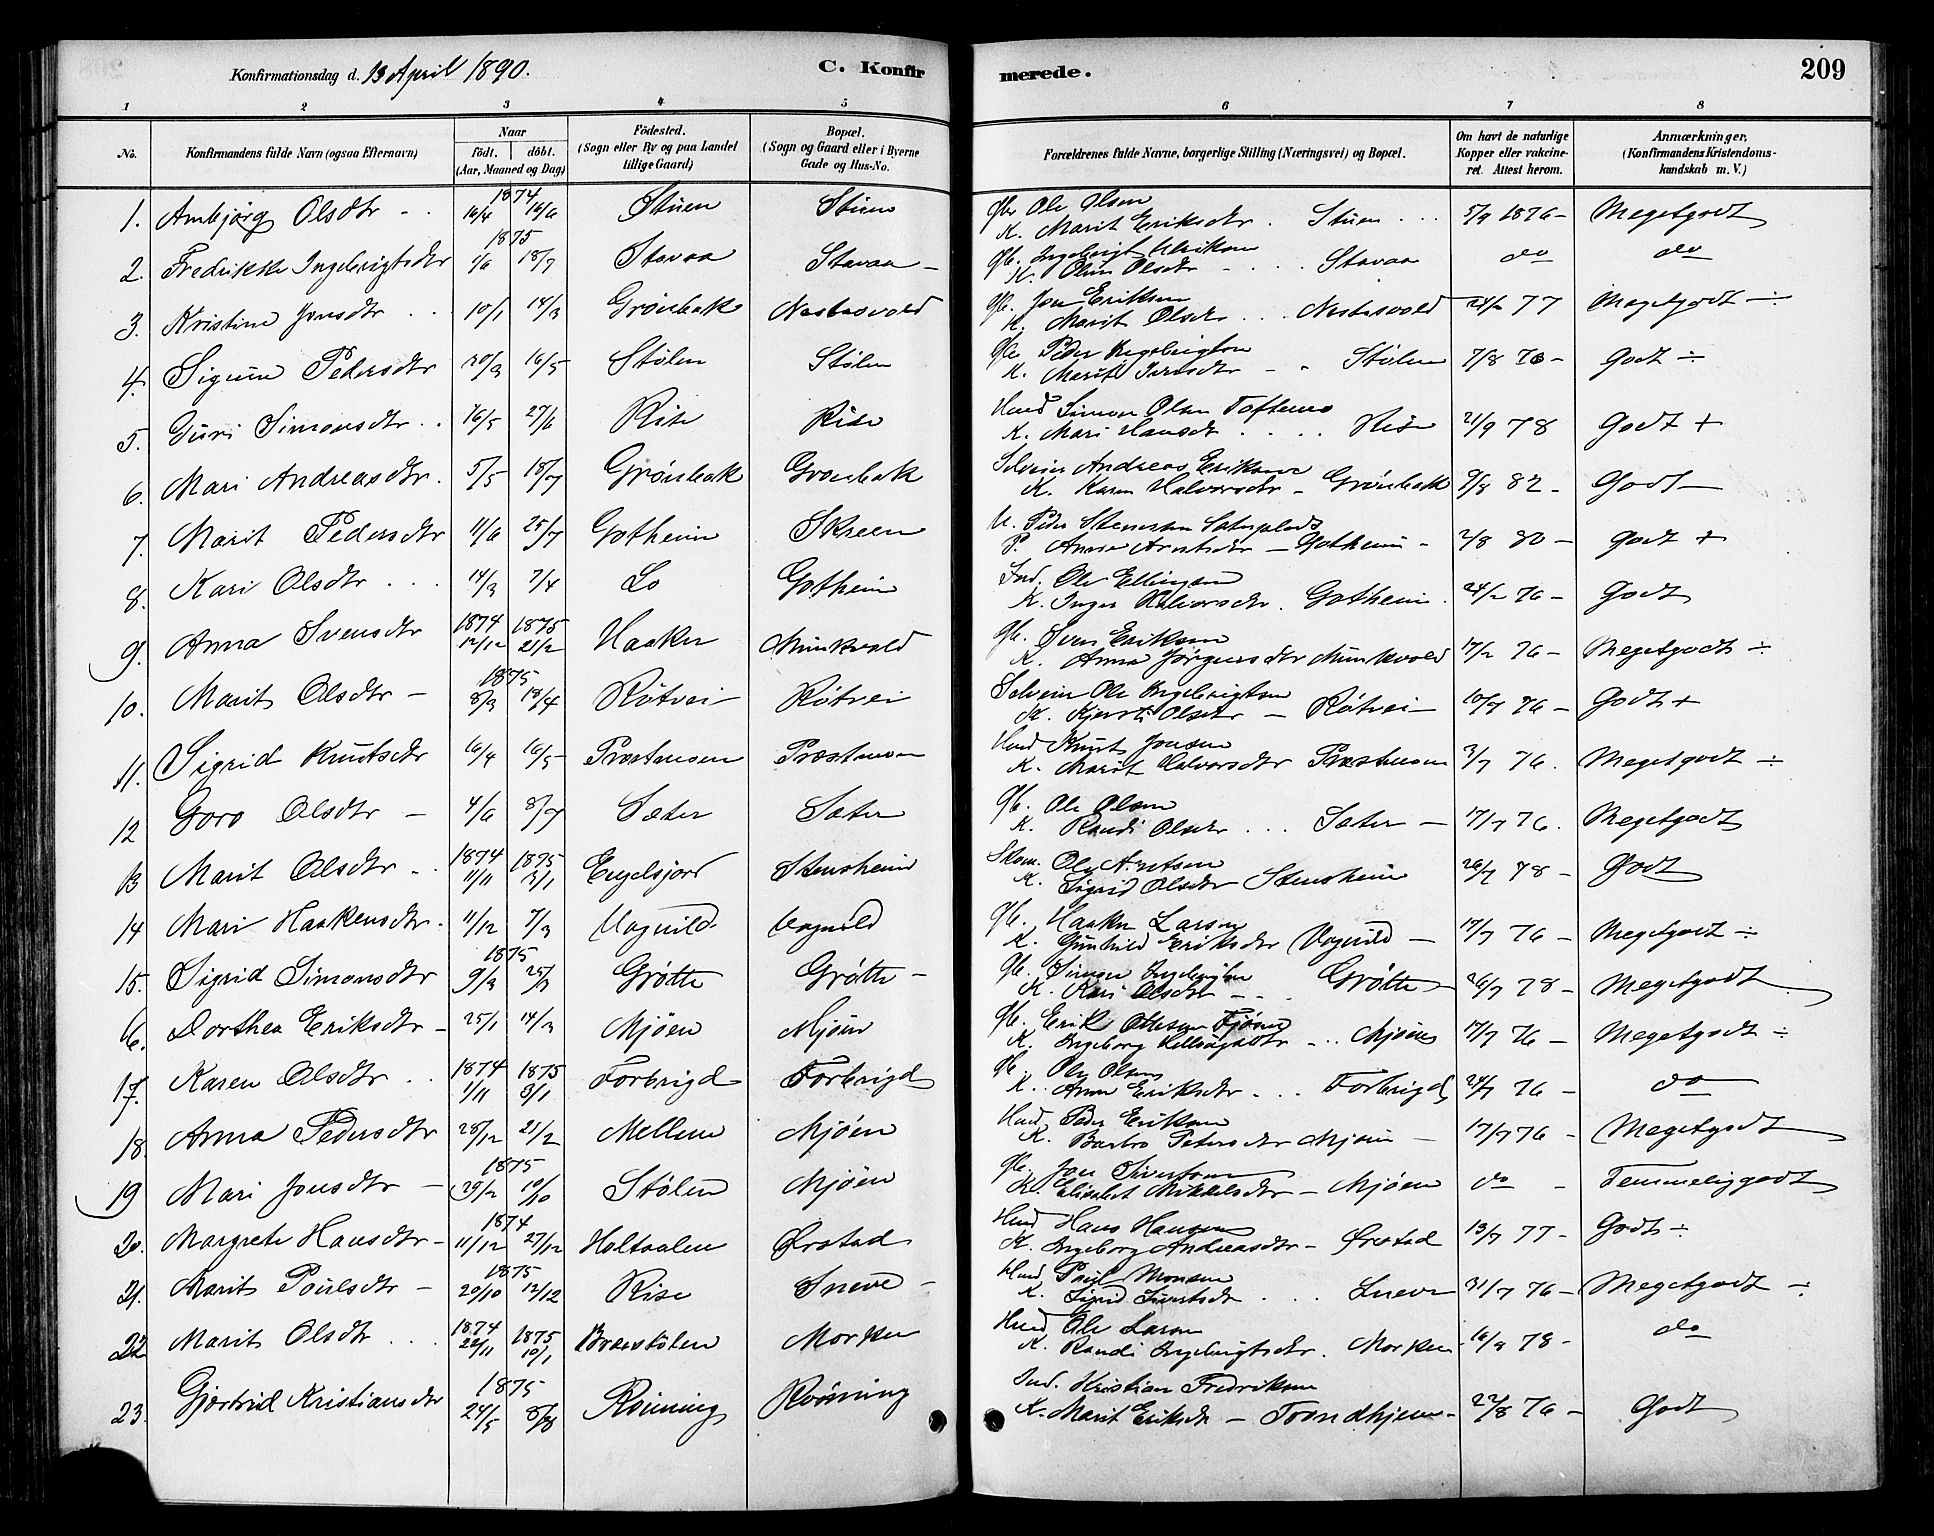 Konfirmationsdag d. 13 April 1890. C. Konfirmerede. 209
1 2 3 4 5 6 7 8
No. Konfirmandens fulde Navn (ogsaa Efternavn) Naar födt. döbt. (Aar, Maaned og Dag) Födested. (Sogn eller By og paa Landet tillige Gaard) Bopæl. (Sogn og Gaard eller i Byerne Gade og Hus-No. Forældrenes fulde Navne, borgerlige Stilling (Næringsvei) og Bopæl. Om havt de naturlige Kopper eller vakcineret. Attest herom. Anmærkninger, (Konfirmandens Kristendomskundskab m. V.)
1874
1. Ambjörg Olsdtr 16/4 16/6 Stuen Stuen Gbr. Ole Olsen K. Marit Eriksdtr. Stuen 5/9 1876 Megetgodt
1875
2. Fredrikke Ingebrigtsdtr 1/6 18/7 Stavaa Stavaa Gb. Ingebrigt K. Oline Olsdtr Stavaa do do
3. Kristine Jonsdtr 10/1 14/3 Grönbak Nastasvold Gb. Jon Eriksen K. Marit Olsdtr Nastasvold 24/2 77 Megetgodt ÷
4. Sigrun Pedersdtr 20/3 16/5 Stølen Stølen Gb. Peder Ingebrigtsen K. Marit Stølen 7/8 76 Godt ÷
5. Guri Simonsdtr 16/5 27/6 Rise Rise Hmd Simon Olsen Toftemo K. Mari Hansdtr Rise 21/9 78 Godt +
6. Mari Andreasdtr. 5/5 18/7 Grönbak Grönbak Selveier Andreas Eriksen K. Karen Halvorsdtr Grönbak 9/8 82 Godt
7. Marit Pedersdtr 11/6 25/7 Gotheim Skreen U. Peder Stensen Sæterplads P. Anne Arntsdtr Gotheim 2/8 80 Godt +
8. Kari Olsdtr 14/3 7/4 Lo Gotheim Ind. Ole Ellingsen K. Inger Halvorsdtr. Gotheim 24/2 76 Godt
9. Anna Svensdtr 1874 12/12 1875 21/2 Haaker Munkvold Gb. Sven Eriksen K. Anna Jörgensdtr Munkvold 17/2 76 Megetgodt ÷
1875
10. Marit Olsdtr 8/3 18/4 Rötvei Rötvei Selveier Ole Ingebrigtsen K. Kjersti Olsdtr Rötvei 10/7 76 Godt +
11. Sigrid Knutsdtr 16/4 16/5 Præstmoen Præstmoen Hmd Knut Jonsen K. Marit Halvorsdtr Præstmoen 3/7 76. Megetgodt ÷
12 Goro Olsdtr 4/6 8/7 Sæter Sæter Gb. Ole Olsen K. Randi Olsdtr Sæter 17/7 76. Megetgodt
13 Marit Olsdtr 1874 11/11 1875 3/1 Engelsjord Stensheim Ole Arntsen K. Sigrid Olsdtr Stensheim 26/7 78 Godt
14 Mari Haakensdtr. 11/12 7/3 Vognild Vognild Gb. Haaken Larsen K. Gunhild Eriksdtr Vognild 17/7 76 Megetgodt ÷
1875
15. Sigrid Simonsdtr 9/3 25/3 Grötte Grötte Gb. Simon Ingebrigtsen K. Kari Olsdtr Grötte 26/7 78 Megetgodt
16. Dorthea Eriksdtr 25/1 14/3 Mjöen Mjöen Gb. Erik Ottesen Fjösne K. Ingeborg Mjöen 17/7 76 Megetgodt ÷
17. Karen Olsdtr 1874 1/11 1875 3/1 Forbrigd Forbrigd Gb. Ole Olsen K. Anne Eriksdtr Forbrigd 24/7 76 do
18. Anna Pedersdtr 28/12 21/2 Mellem Mjöen Hmd Peder Eriksen K. Barbro Petersdtr Mjöen 17/7 76 Megetgodt
1875
19 Mari Jonsdtr 29/2 10/10 Stölen Mjöen Gb. Jon Sivertsen K. Elisabet Mikkelsdtr Mjöen do Temmeliggodt
1874
20. Margrete Hansdtr 11/12 27/12 Holtaalen Örstad Hmd Hans Hansen K. Ingeborg Andreasdtr Örstad 13/7 77 Godt ÷
1875
21. Marit Poulsdtr 20/10 12/12 Rise Sneve Hmd Poul Monsen K. Sigrid Sivertsdtr Sneve 31/7 76 Megetgodt ÷
22 Marit Olsdtr 1874 22/11 1875 10/1 Braastölen Morken Hmd Ole Larsen K. Randi Ingebrigtsdtr. Morken 16/9 78 do
1875
23. Gjertrud Kristiansdtr 24/5 8/8 Rönning Rönning Ind. Kristian Fredriksen K. Marit Eriksdtr Trondhjem 22/8 76 Godt